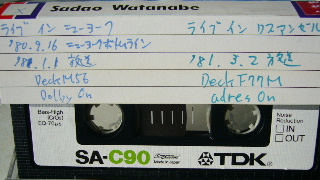 Sadao Watanabe
ライブ イン ニューヨーク
'80.9.16 ニューヨークボトムライン
'81.1.1 放送
Deck M56
Dolby On
ライブ イン
'81.3.2 放送
Deck F77M
adres On
Bias
High(CrO2)
EQ-70μs
Noise
Reduction
IN
OUT
SA-C90
Made in Japan
TDK